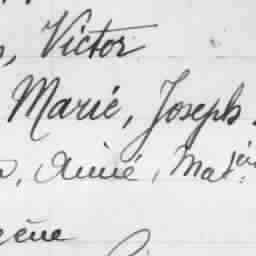 , Victor
Marie, Joseph
, Aimé, Ma
ène